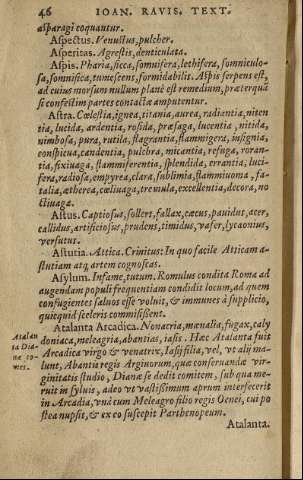 46 IOAN. RAVIS. TEXT.
asparagi coquantur.
Aspectus. Venustus, pulcher.
Asperitas. Agrestis, denticulata.
Aspis. Pharia, sicca, somnifera, lethifera, somniculo-
sa, somnifica, tumescens, formidabilis. Aspis serpens est,
ad cuius morsum nullum planè est remedium, præterquā
si confestim partes contactæ amputentur.
Astra. Cœlestia, ignea, titania, aurea, radiantia, niten
tia, lucida, ardentia, rosida, præsaga, lucentia, nitida,
nimbosa, pura, rutila, flagrantia, flammigera, insignia,
conspicua, candentia, pulchra, micantia, refuga, roran-
tia, fixiuaga, flammiferentia, splendida, errantia, luci-
fera, radiosa, empyrea, clara, sublimia, flammiuoma, fa-
talia, ætherea, cœliuaga, tremula, excellentia, decora, no
ctiuaga.
Astus. Captiosus, sollers, fallax, cæcus, pauidus, acer,
callidus, artificiosus, prudens, timidus, vafer, lycaonius,
versutus.
Astutia. Attica. Crinitus: In quo facile Atticam a-
stutiam atq; artem cognoscas.
Asylum. Infame, tutum. Romulus condita Roma ad
augendam populi frequentiam condidit locum, ad quem
confugientes saluos esse voluit, & immunes à supplicio,
quicquid sceleris commisissent.
Atalanta Arcadica. Nonacria, mænalia, fugax, caly
donia ca, meleagria, abantias, iasis. Hæc Atalanta fuit
Arcadica virgo & venatrix, Iasij filia, vel, vt alij ma-
lunt, Abantis regis Arginorum, quæ conseruandæ vir-
ginitatis studio, Dianæ se dedit comitem, sub qua me-
ruit in syluis, adeo vt vastissimum aprum interfecerit
in Arcadia, vnà cum Meleagro filio regis Oenei, cui po
stea nupsit, & ex eo suscepit Parthenopeum.
Atalanta.
Atalan
ta Dia-
næ co-
mes.